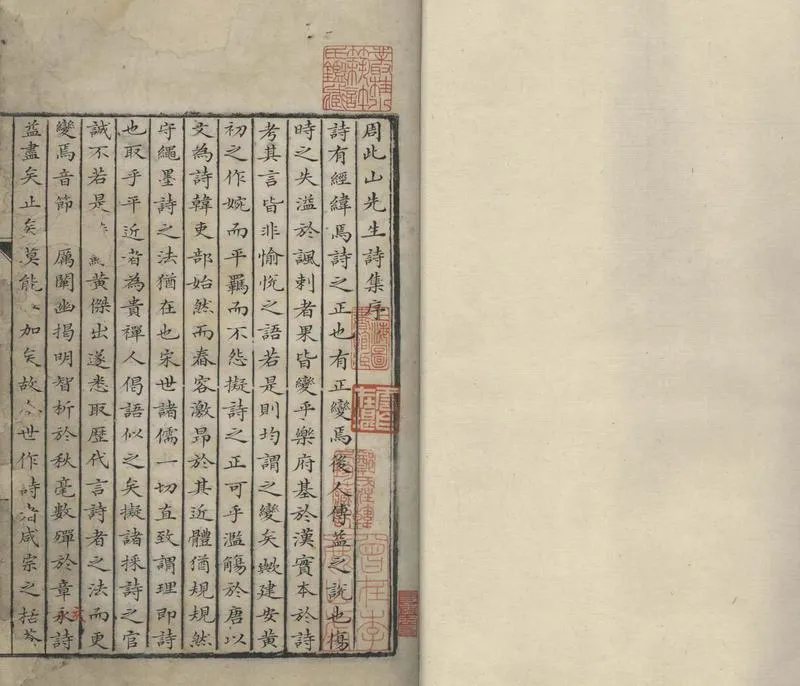 周此山先生詩集序
詩有經緯焉詩之正也有正變焉後人傅益之說也傷
時之失溢於諷刺者果皆變乎樂府基於漢實本於詩
考其言皆非愉悅之語若是則均謂之變矣歟建安黃
初之作婉而平羈而不怨擬詩之正可乎濫觴於唐以
文為詩韓吏部始然而舂容激昂於其近體猶規規然
守繩墨詩之法猶在也宋世諸儒一切直致謂理即詩
也取乎平近者為貴禪人偈語似之矣擬諸採詩之官
誠不若是黃傑出遂悉取歷代言詩者之法而更
變焉音節厲闡幽揭明智析於秋毫數殫於章永詩
益盡矣止矣莫能加矣故世作詩者咸宗之括蒼